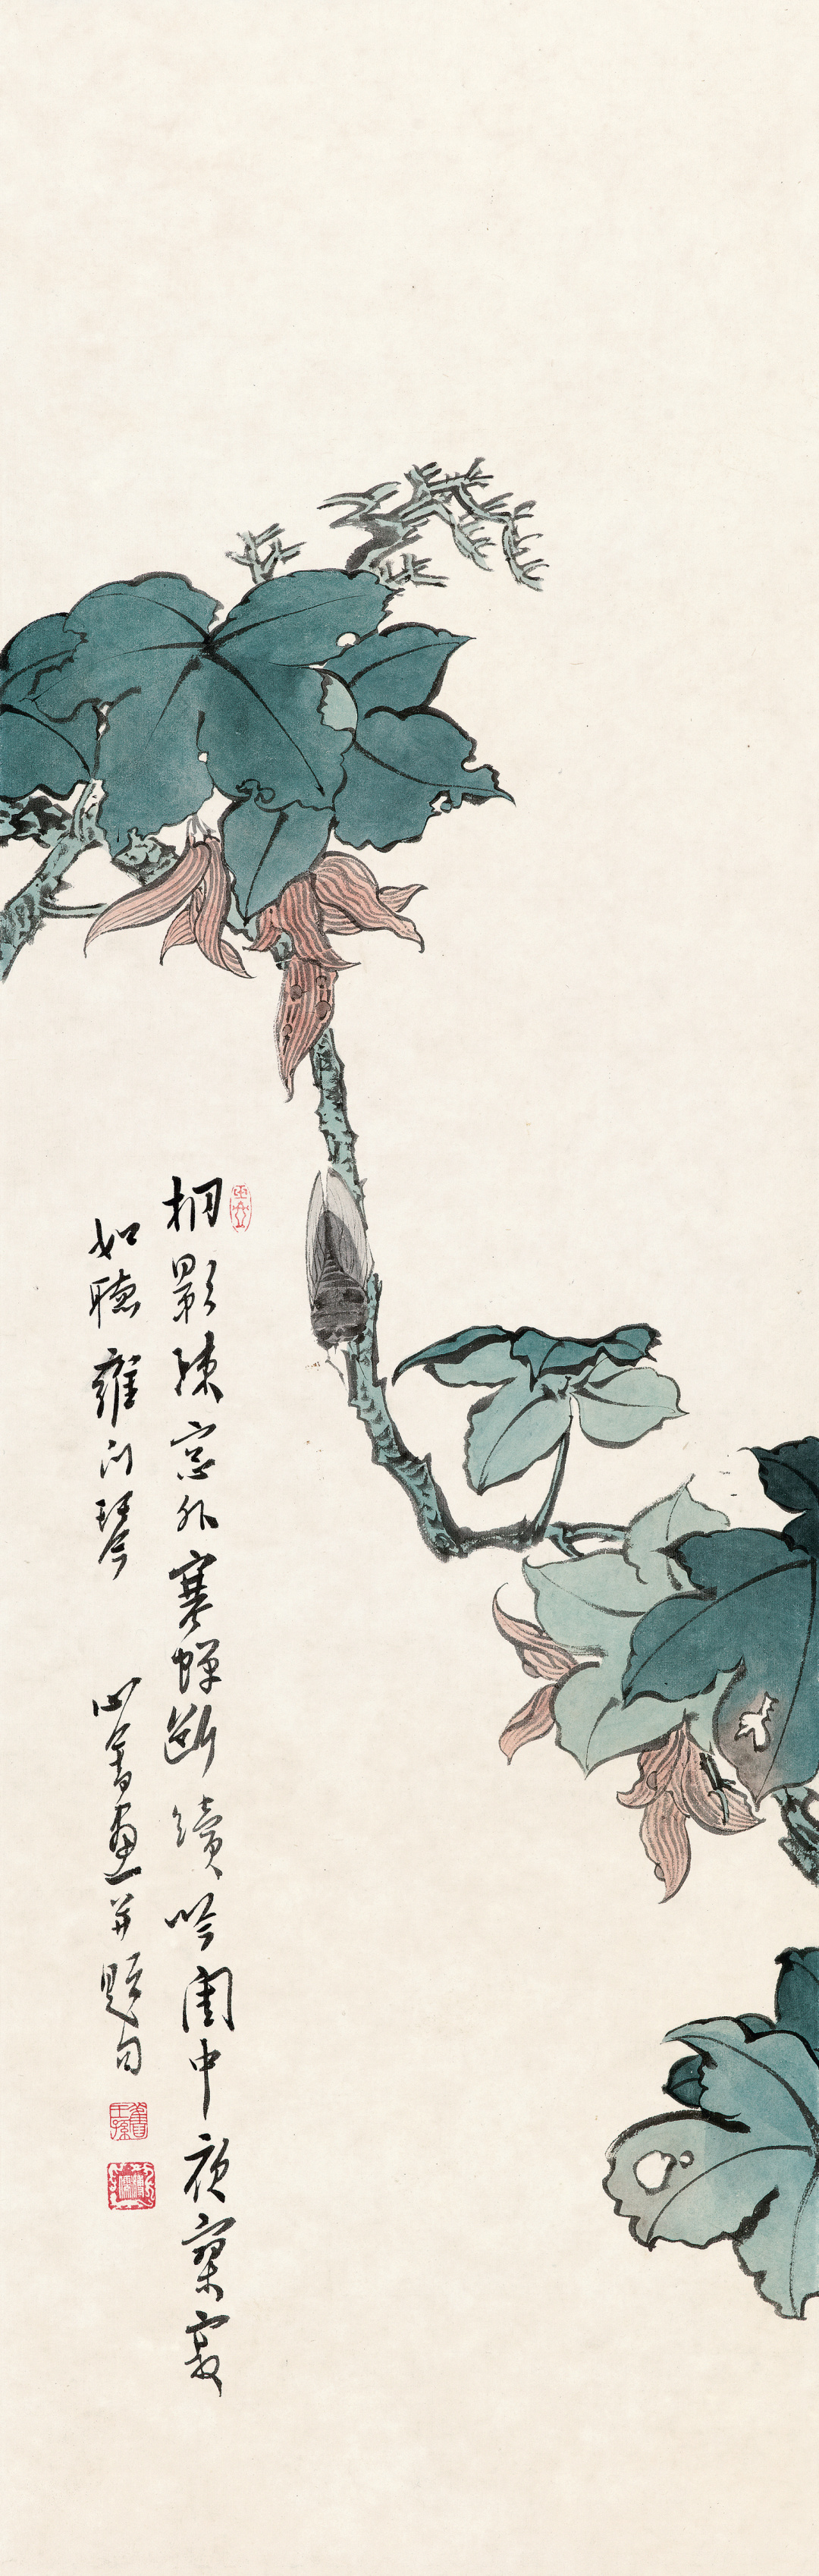 桐影疎窓外寒蟬斷續吟閨中夜寥寂
如聽雍門琴 心畬畫并題句